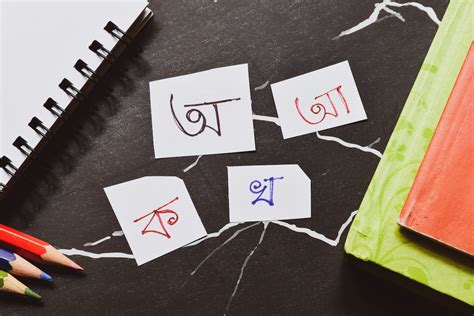 অ আ
ক খ